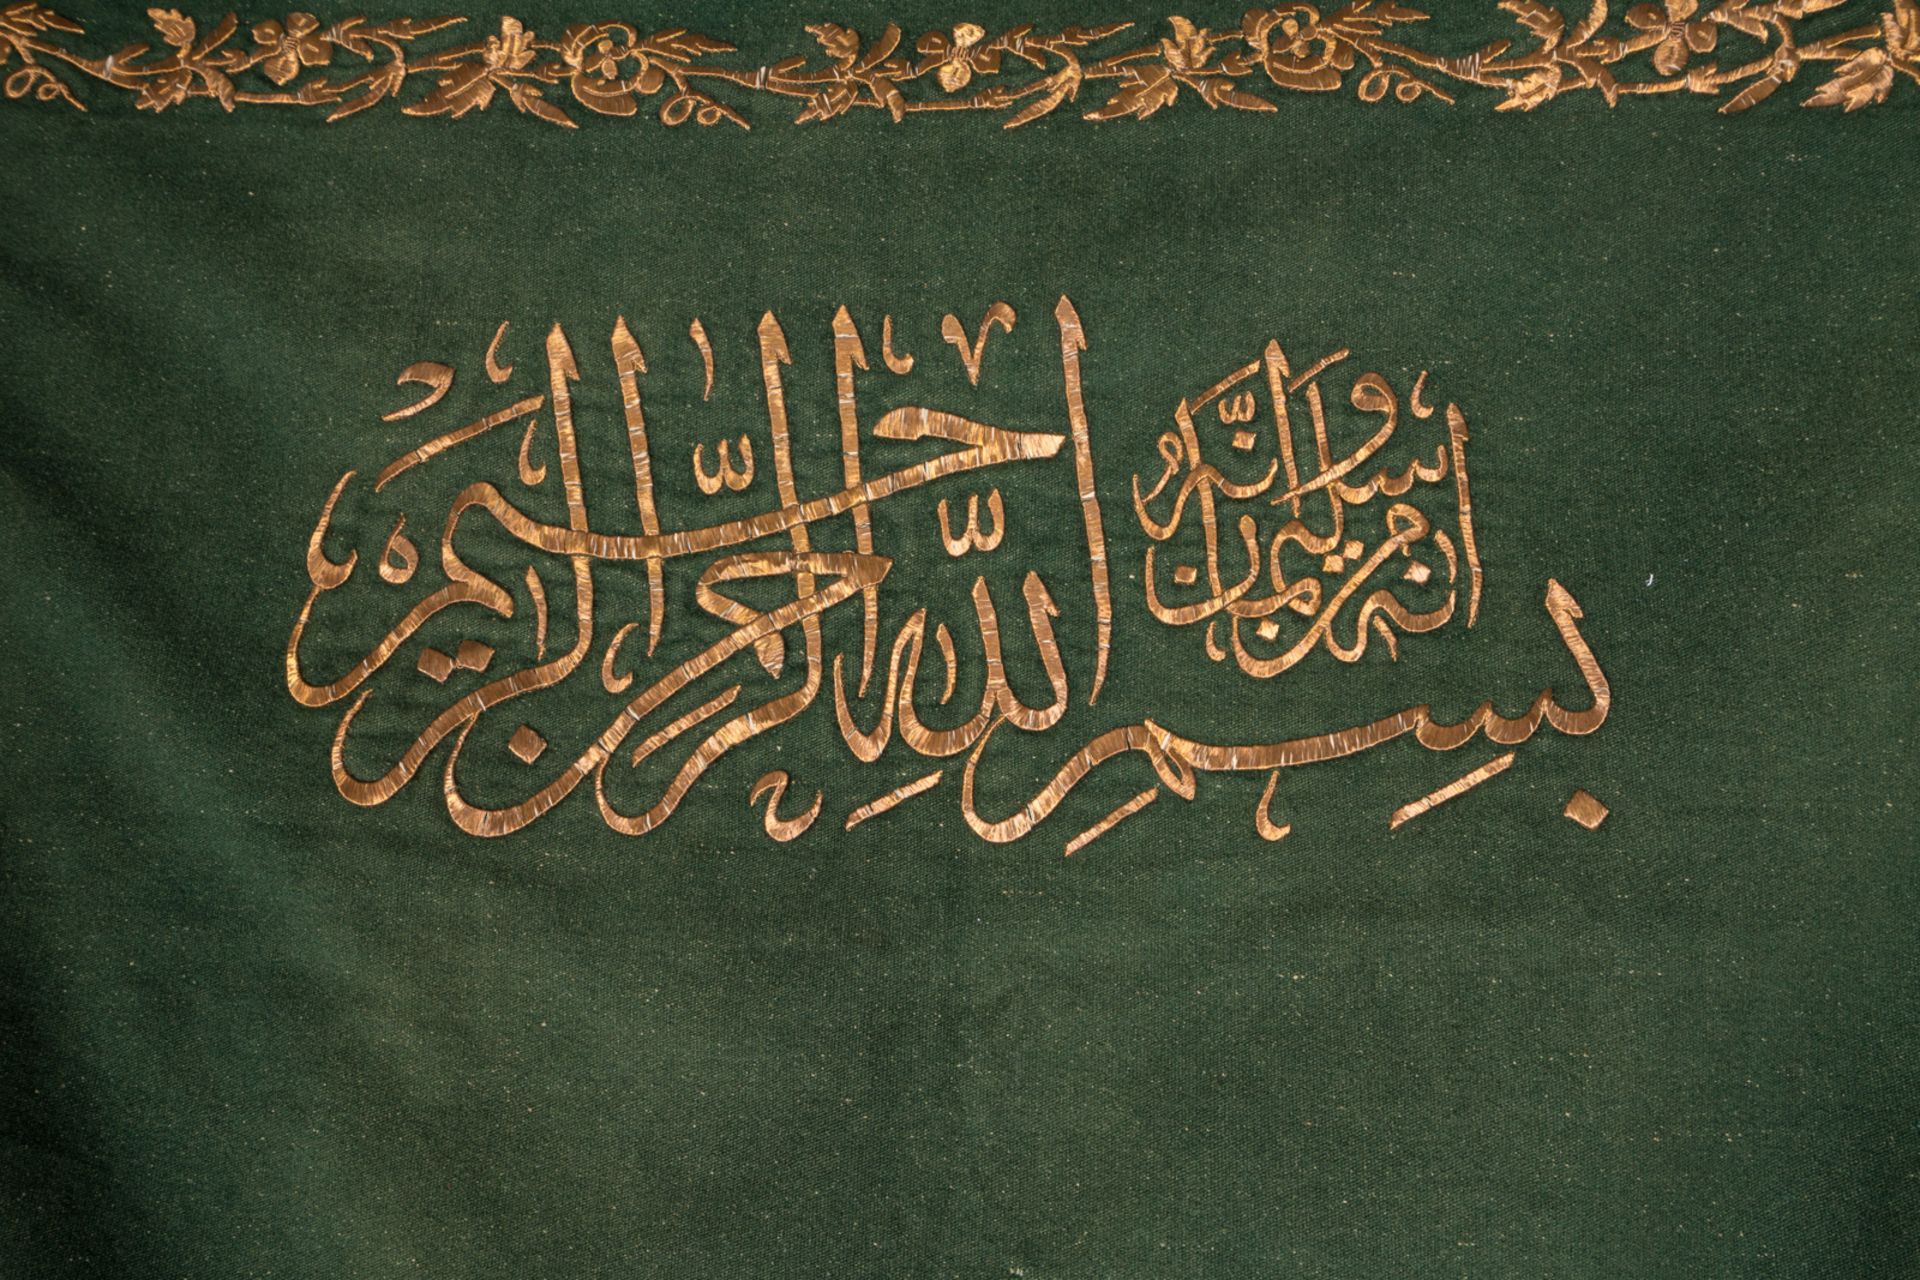 انه من سليمن وانه
بسم الله الرحمن الرحيم